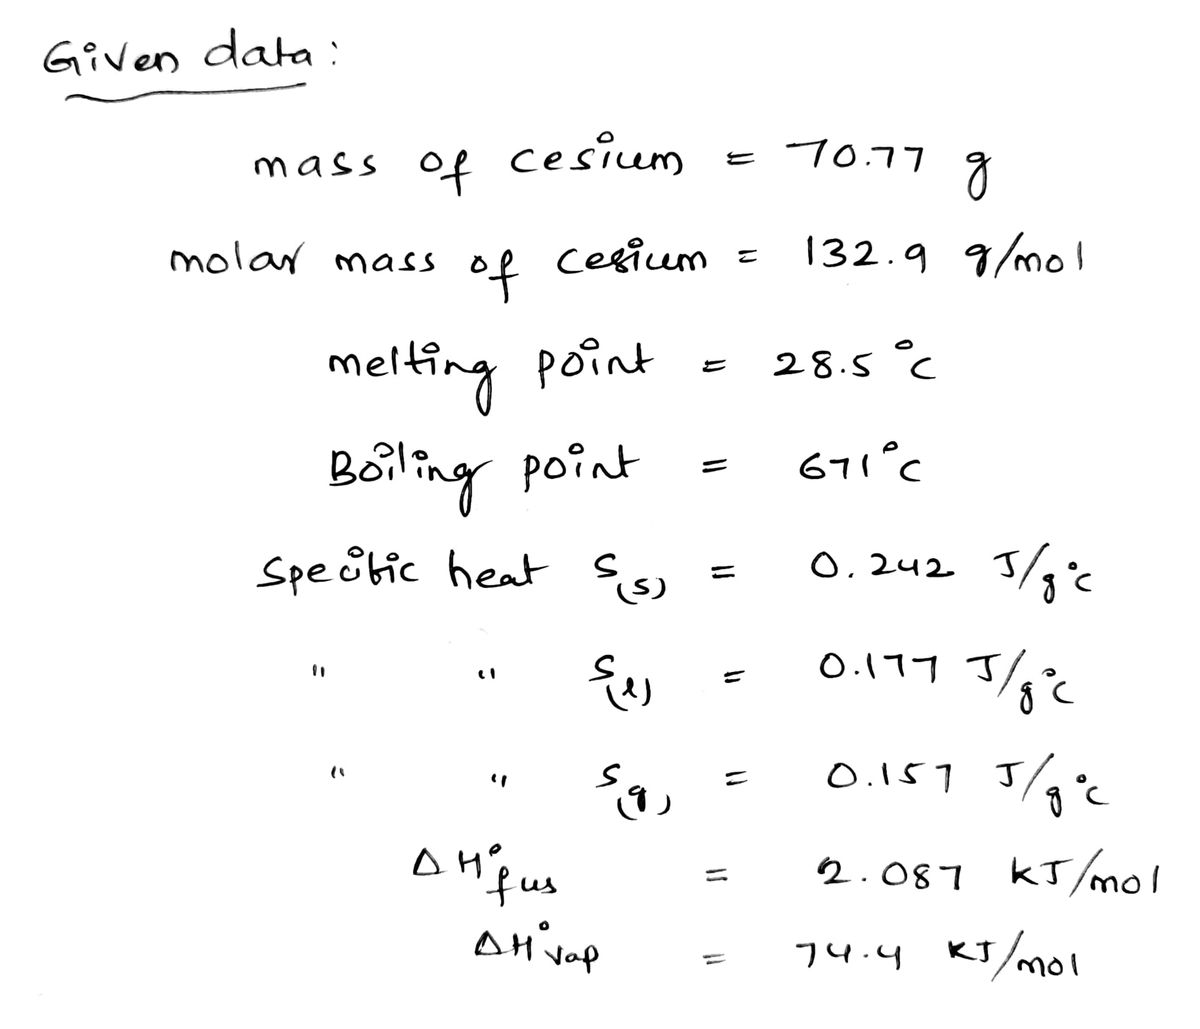 Given data:
mass of cesium = 70.77 g
molar mass of cesium = 132.9 g/mol
melting point = 28.5 °c
Boiling point = 671°c
Specific heat S(s) = 0.242 J/g°c
" " S(l) = 0.177 J/g°c
" " S(g) = 0.157 J/g°c
ΔH°fus = 2.087 kJ/mol
ΔH°vap = 74.4 KJ/mol